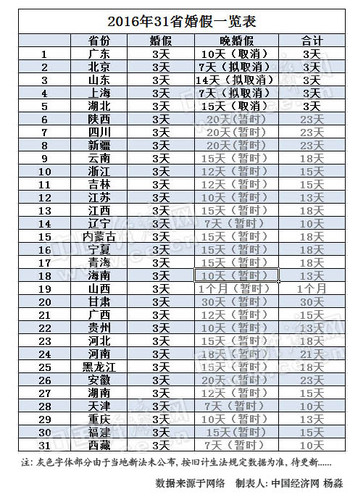 2016年31省婚假一览表
省份 婚假 晚婚假 合计
1 广东 3天 10天(取消) 3天
2 北京 3天 7天(拟取消) 3天
3 山东 3天 14天(拟取消) 3天
4 上海 3天 7天(拟取消) 3天
5 湖北 3天 15天(取消) 3天
6 陕西 3天 20天(暂时) 23天
7 四川 3天 20天(暂时) 23天
8 新疆 3天 20天(暂时) 23天
9 云南 3天 15天(暂时) 18天
10 浙江 3天 12天(暂时) 15天
11 吉林 3天 12天(暂时) 15天
12 江苏 3天 10天(暂时) 13天
13 江西 3天 15天(暂时) 18天
14 辽宁 3天 7天(暂时) 10天
15 内蒙古 3天 15天(暂时) 18天
16 宁夏 3天 15天(暂时) 18天
17 青海 3天 15天(暂时) 18天
18 海南 3天 10天(暂时) 13天
19 山西 3天 1个月(暂时) 1个月
20 甘肃 3天 30天(暂时) 30天
21 广西 3天 12天(暂时) 15天
22 贵州 3天 10天(暂时) 13天
23 河北 3天 15天(暂时) 18天
24 河南 3天 18天(暂时) 21天
25 黑龙江 3天 15天(暂时) 18天
26 安徽 3天 20天(暂时) 23天
27 湖南 3天 12天(暂时) 15天
28 天津 3天 7天(暂时) 10天
29 重庆 3天 10天(暂时) 13天
30 福建 3天 15天(暂时) 15天
31 西藏 3天 7天(暂时) 10天
注：灰色字体部分由于当地新法未公布,按旧计生法规定数据为准,待更新……
数据来源于网络 制表人：中国经济网 杨淼